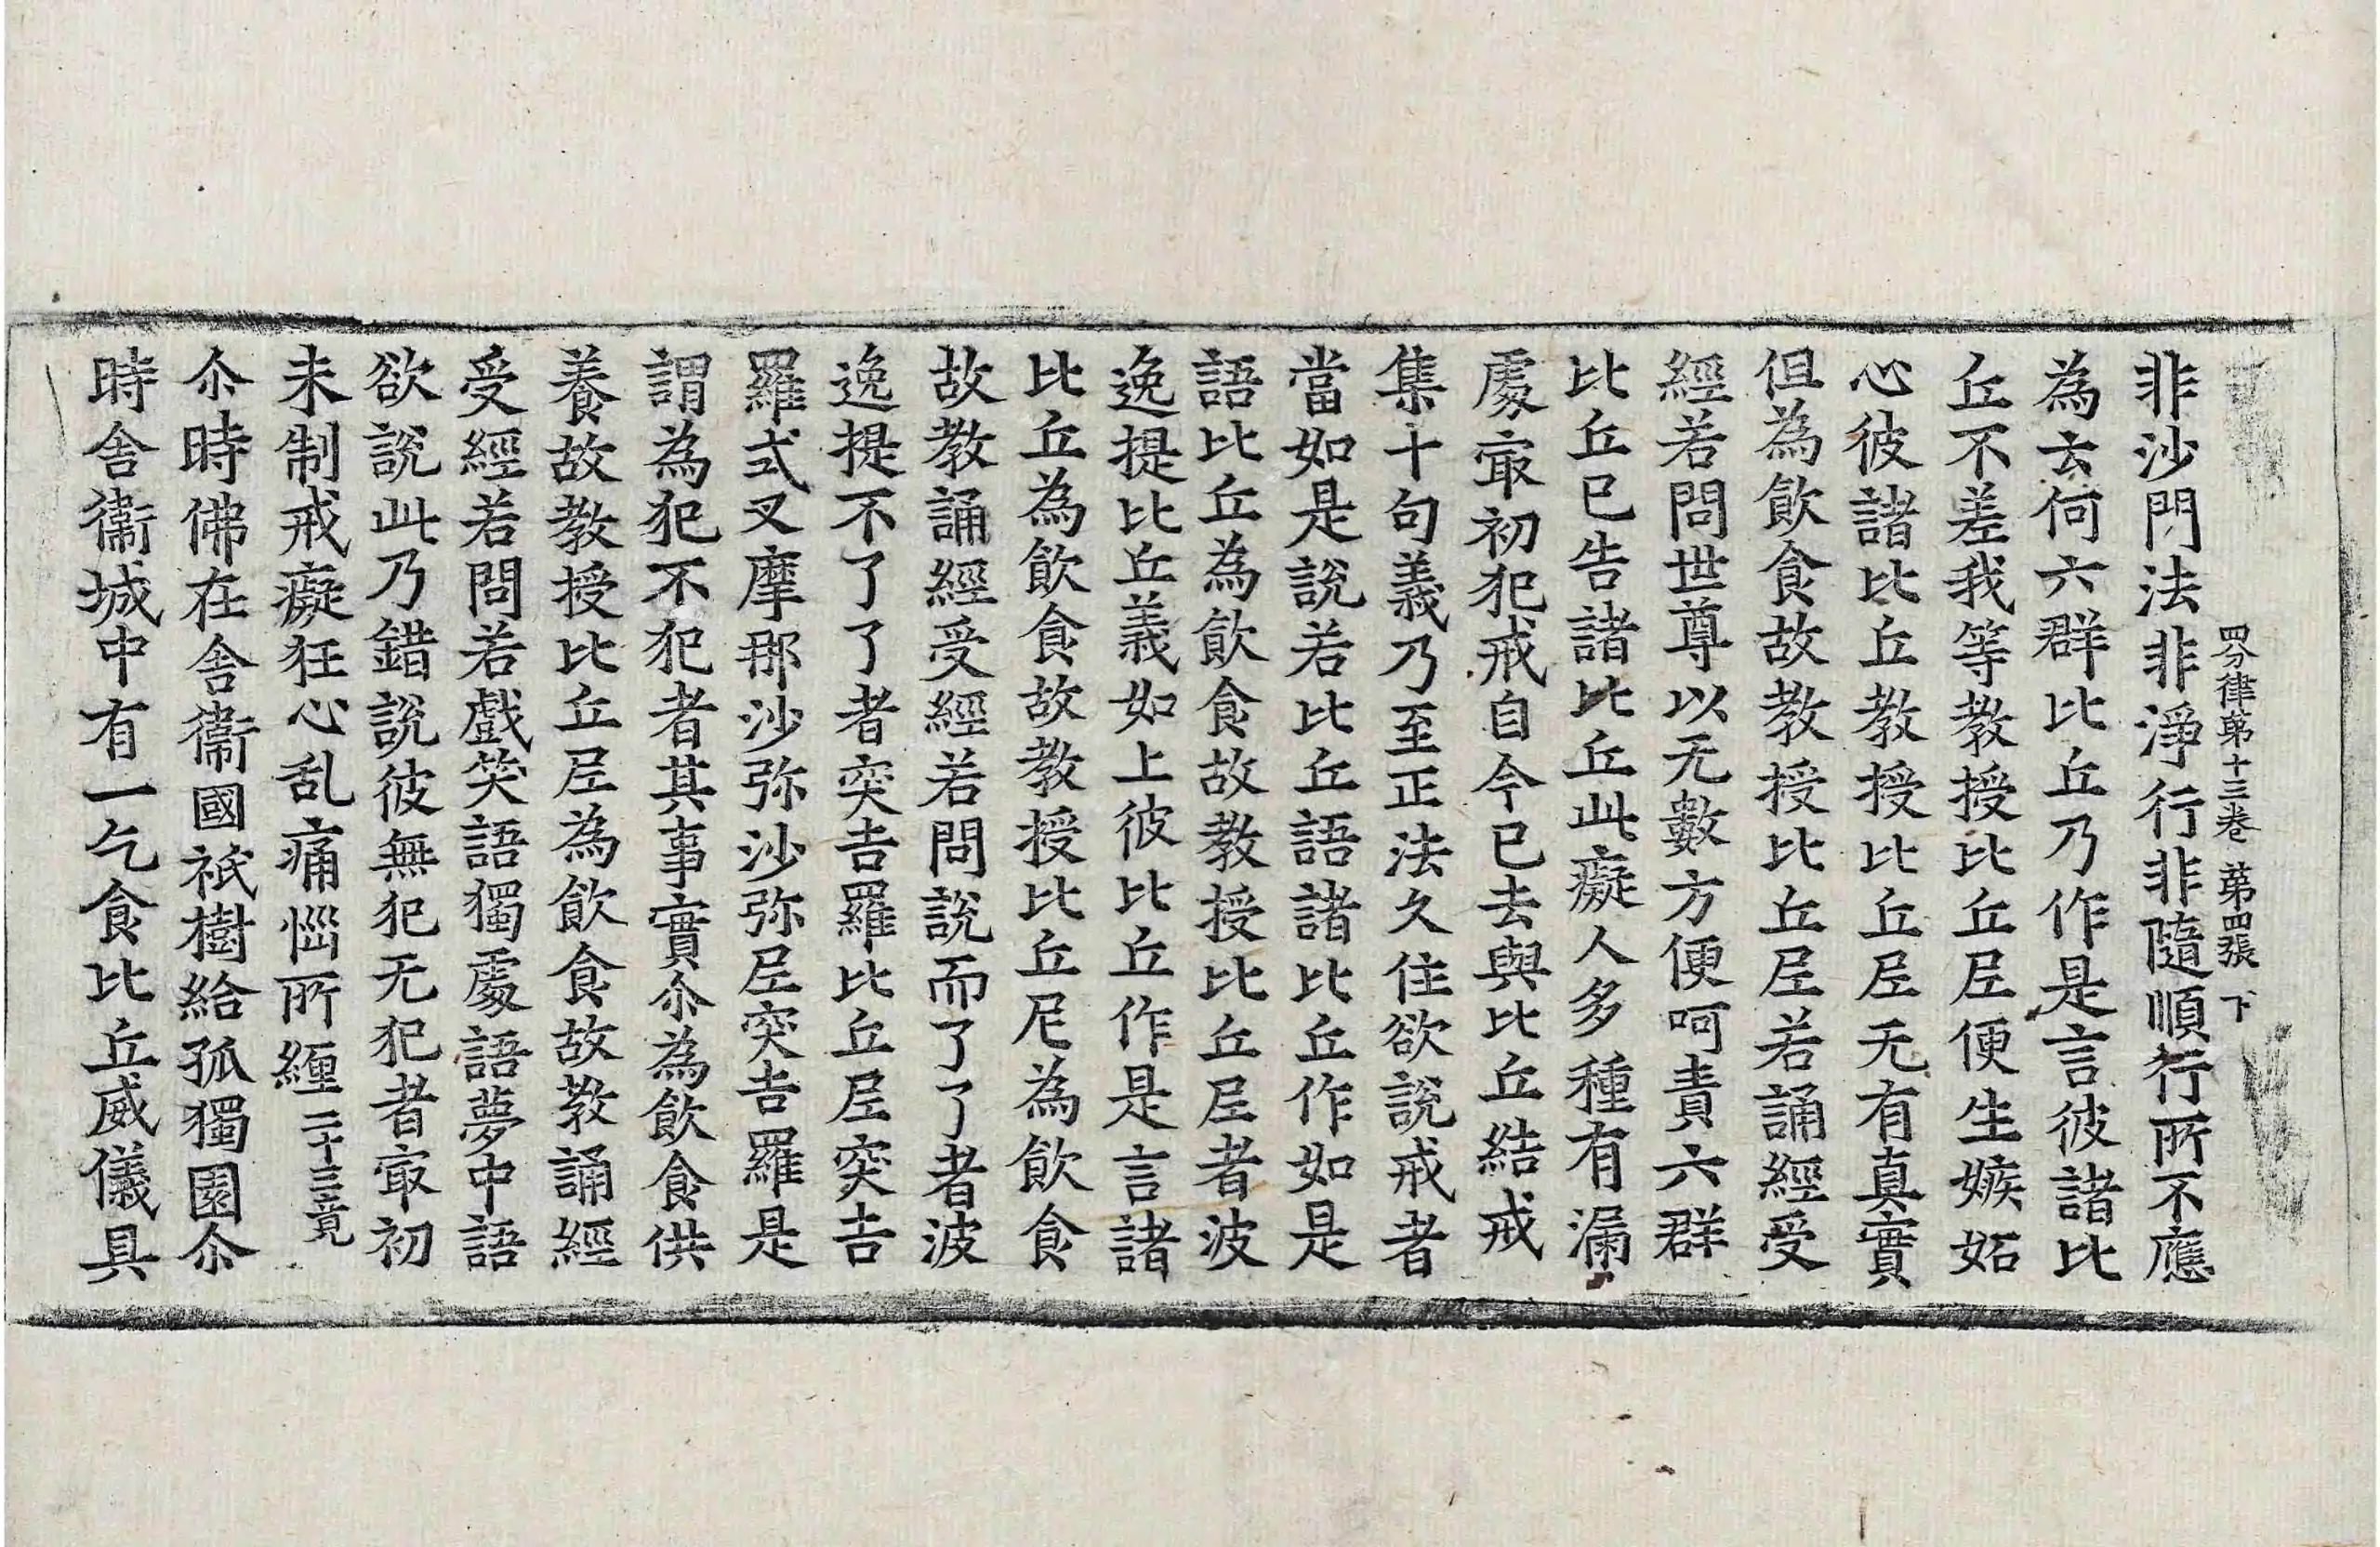 四分律第十三卷 第四張 下
非沙門法非淨行非隨順行所不應
為云何六群比丘乃作是言彼諸比
丘不差我等教授比丘尼便生嫉妬
心彼諸比丘教授比丘尼无有真實
但為飲食故教授比丘尼若誦經受
經若問世尊以无數方便呵責六群
比丘已告諸比丘此癡人多種有漏
處㝡初犯戒自今已去與比丘結戒
集十句義乃至正法久住欲說戒者
當如是說若比丘語諸比丘作如是
語比丘為飲食故教授比丘尼者波
逸提比丘義如上彼比丘作是言諸
比丘為飲食故教授比丘尼為飲食
故教誦經受經若問說而了了者波
逸提不了了者突吉羅比丘尼突吉
羅式叉摩那沙弥沙弥尼突吉羅是
謂為犯不犯者其事實尒為飲食供
養故教授比丘尼為飲食故教誦經
受經若問若戲笑語獨處語夢中語
欲說此乃錯說彼無犯无犯者㝡初
未制戒癡狂心乱痛惱所纒二十三竟
尒時佛在舍衛國祇樹給孤獨園尒
時舍衛城中有一乞食比丘威儀具